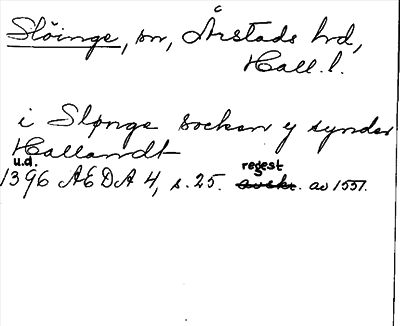 Slöinge, sn, Årstads hd,
Hall. l.
i Slønge socken y synder
Hallandt
u.d. regest
1396 AEDA 4, s. 25. avskr. av 1551.